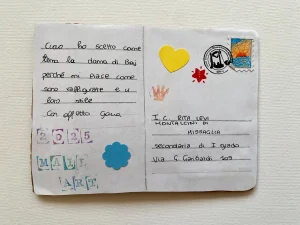 Ciao ho scelto come
tema la dama di Baj
perché mi piace come
sono raffigurate e il
loro stile
Con affetto
2025
MAIL
ART
I.C. RITA LEVI
MONTALCINI DI
MISSAGLIA
secondaria di I grado
Via G. Garibaldi